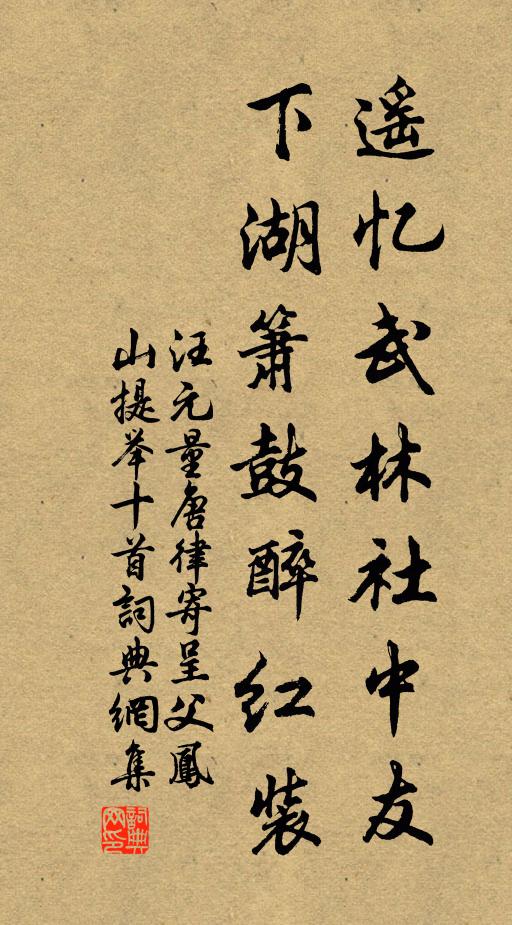 遥忆武林社中友
下湖箫鼓醉红装
汪元量唐律寄呈父鳳
山提举十首詞典網集
詞典網印